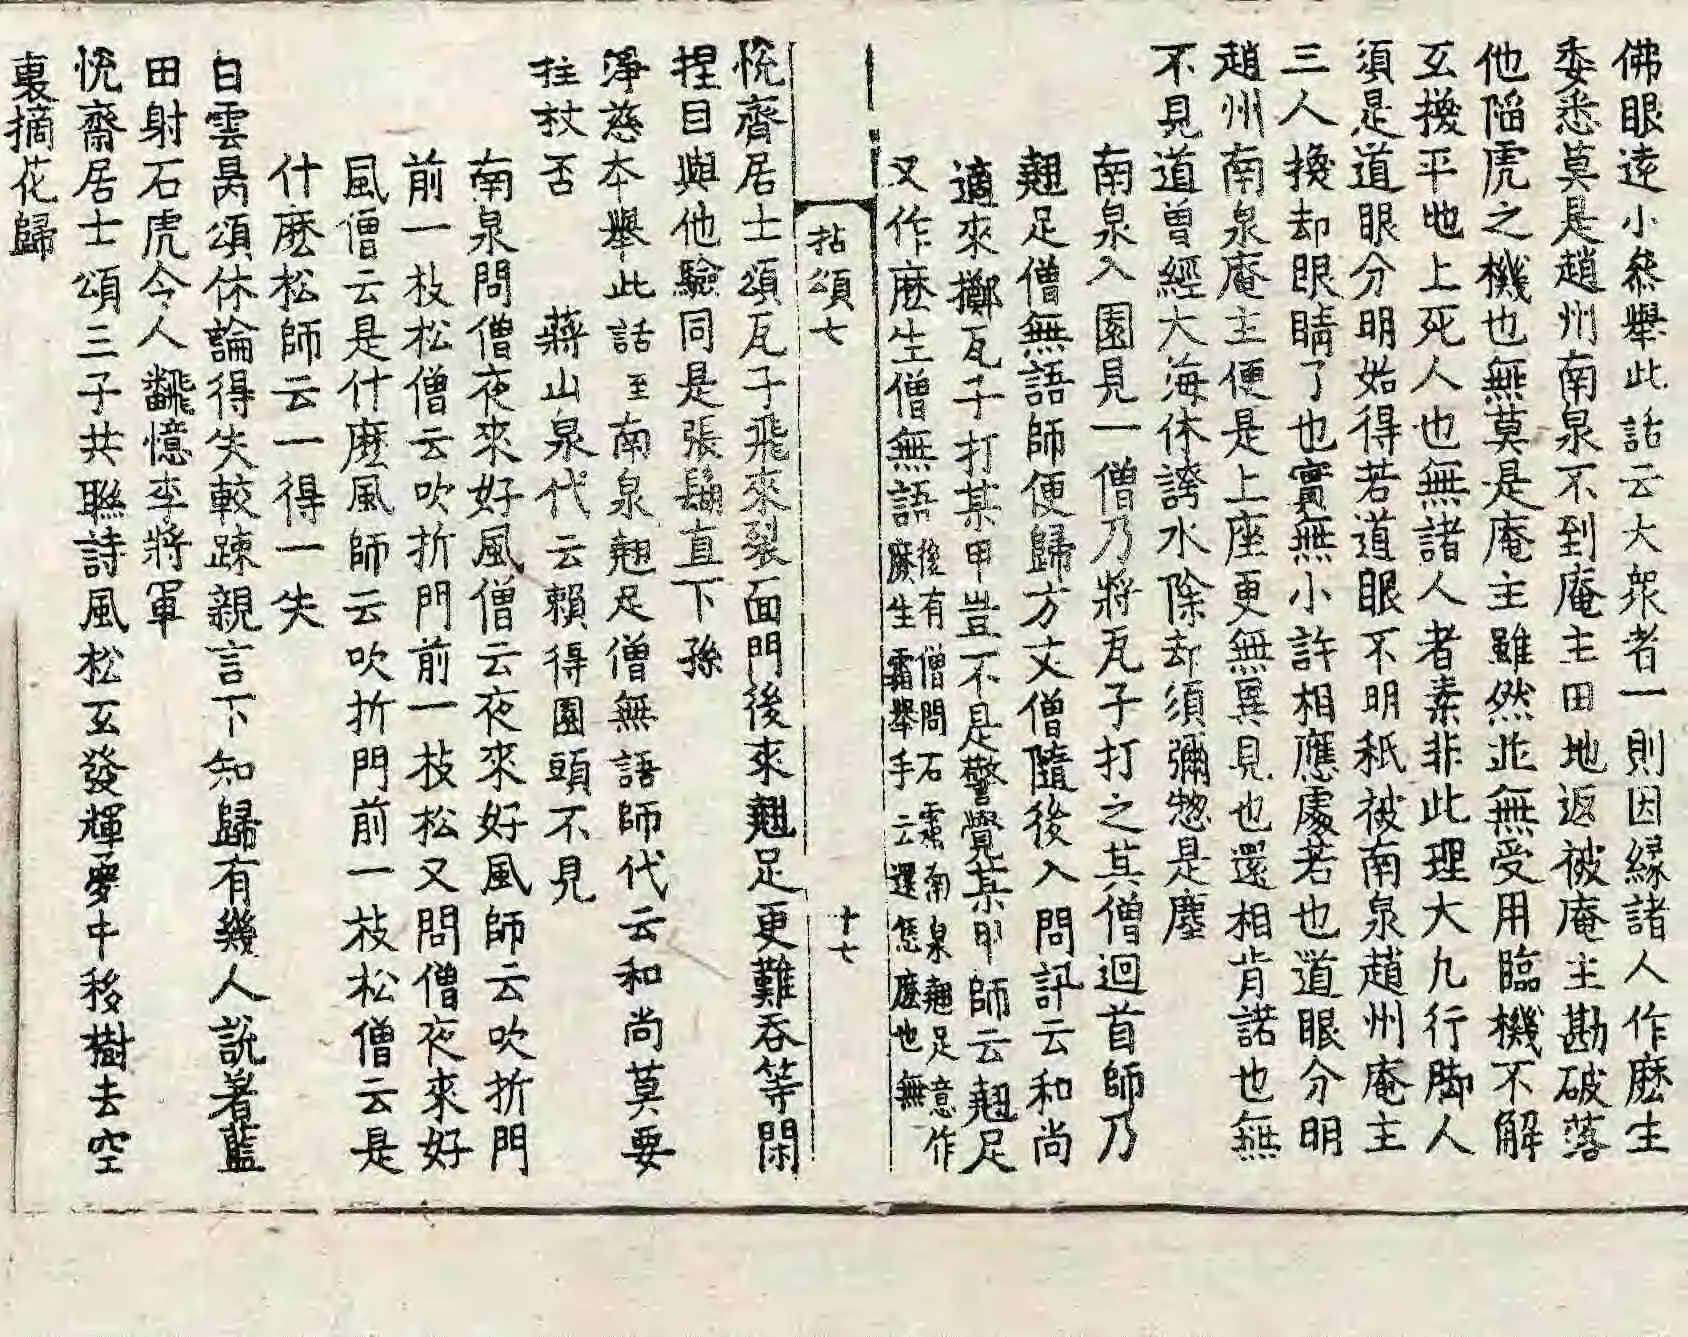 佛眼遠小叅舉此話云大衆者一則因緣諸人作麽生
委悉莫是趙州南泉不到庵主田地返被庵主勘破落
他陷虎之機也無莫是庵主雖然並無受用臨機不解
互換平地上死人也無諸人者素非此理大凡行脚人
須是道眼分明始得若道眼不明秖被南泉趙州庵主
三人換却眼睛了也實無小許相應處若也道眼分明
趙州南泉庵主便是上座更無異見也還相肯諾也無
不見道曾經大海休誇水除却須彌惣是塵
南泉入園見一僧乃將瓦子打之其僧迴首師乃
翹足僧無語師便歸方丈僧隨後入問訊云和尚
適來擲瓦子打某甲豈不是警覺某甲師云翹足
又作麽生僧無語後有僧問石霜南泉翹足意作
麽生霜舉手云還恁麽也無
拈頌七 十七
悅齋居士頌瓦子飛來裂面門後來翹足更難吞等閑
捏目與他驗同是張鬍直下孫
淨慈本舉此話至南泉翹足僧無語師代云和尚莫要
拄杖否 蔣山泉代云賴得園頭不見
南泉問僧夜來好風僧云夜來好風師云吹折門
前一枝松僧云吹折門前一枝松又問僧夜來好
風僧云是什麽風師云吹折門前一枝松僧云是
什麽松師云一得一失
白雲昺頌休論得失較踈親言下知歸有幾人說著藍
田射石虎令人飜憶李將軍
悅齋居士頌三子共聮詩風松互發輝夢中移樹去空
裏摘花歸